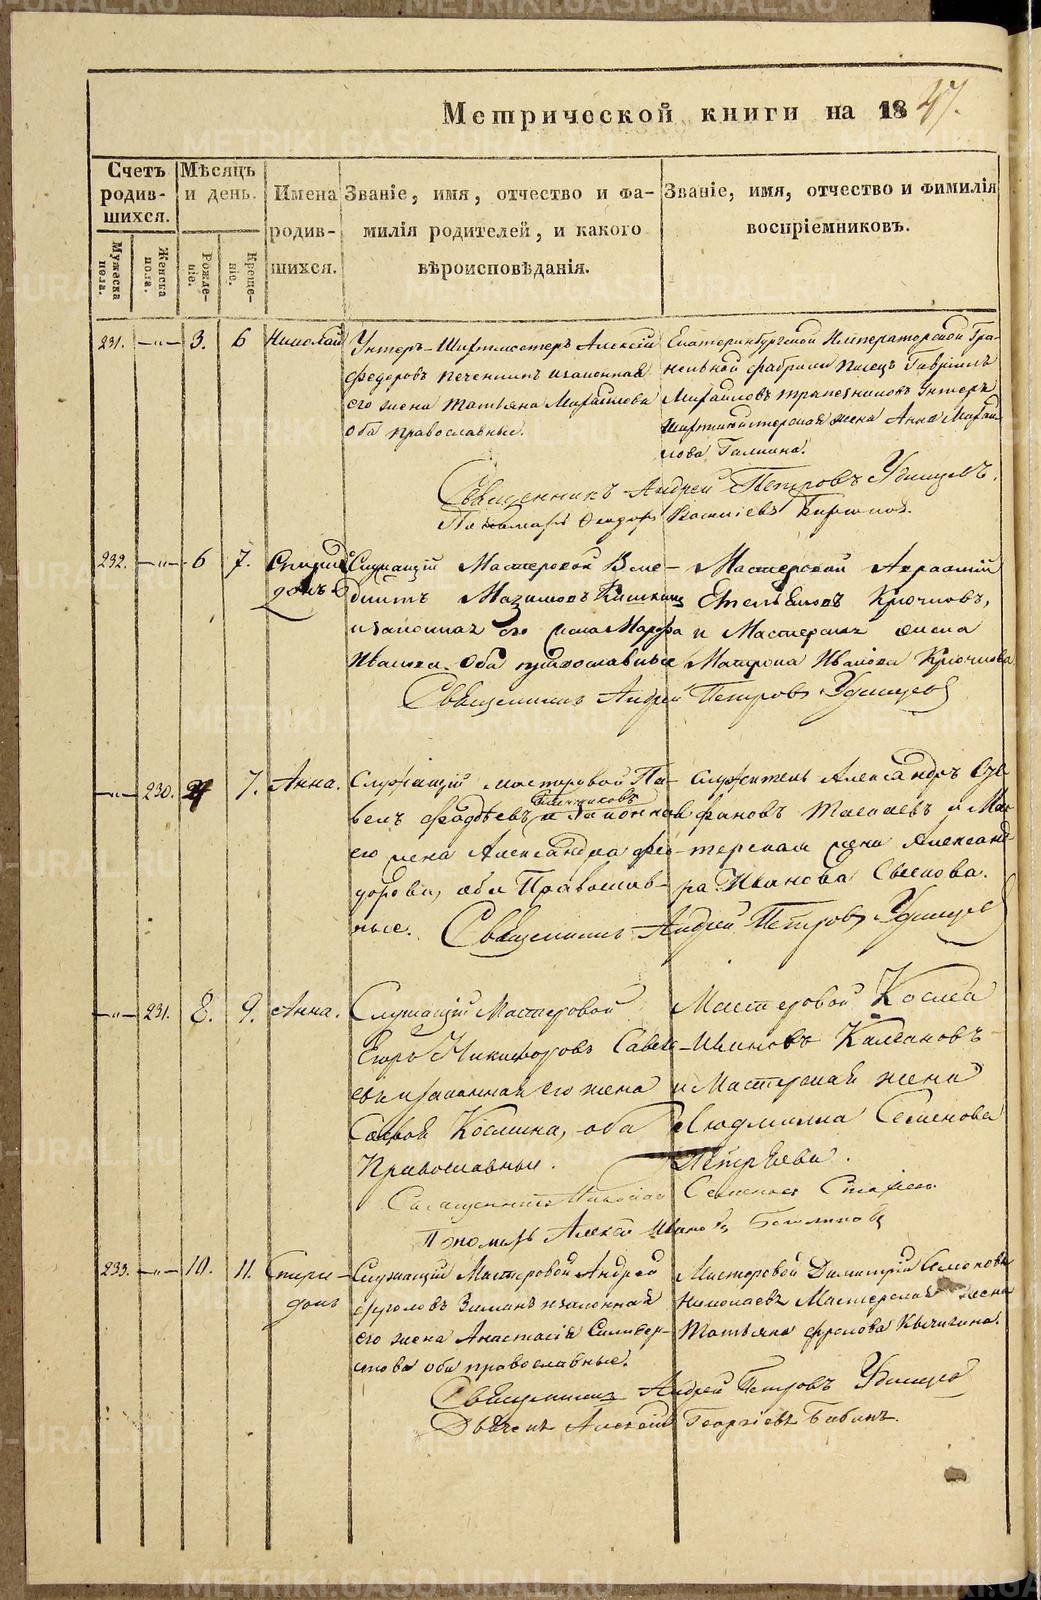 Метрической книги на 1847.
Счетъ родив-шихся.
Мѣсяцъ и день.
Имена родив-шихся.
Званіе, имя, отчество и фа-
милія родителей, и какого
вѣроисповѣданія.
Званіе, имя, отчество и фимилія
воспріемниковъ.
Мужеска пола.
Женска пола.
Рожде-ніе.
Креще-ніе.
231. —"— 3. 6 Николай
Унтеръ-Шихтмейстеръ Алексѣй
Федоровъ Печенкинъ и законная
его жена Татьяна Михайлова
Оба православные.
Екатеринбургской Императорской Гра-
нильной фабрики Писецъ Гавріилъ
Михайловъ Трапезниковъ Унтеръ
Шихтмейстерская жена Анна Михай-
лова Галкина.
Священникъ Андрей Петровъ Удинцевъ.
Пономарь Федоръ
232. —"— 6 7. Спири
донъ
Служащій Мастеровой Вене-
диктъ Мазимовъ Кишкинъ
и законная его жена Марфа
Иванова. Оба православные
Мастеровой Авраамій
Емельяновъ Крючковъ,
и Мастерская жена
Матрона Иванова Крючкова
Священникъ Андрей Петровъ Удинцевъ
—"— 230. 7. Анна.
Служащій мастеровой Па-
велъ Фадѣевъ и законная
его жена Александра Фео-
дорова, оба Православ-
ные.
Служитель Александръ Сте-
фановъ и Мас-
терская жена Александ-
ра Иванова
Священникъ Андрей Петровъ Удинцевъ
—"— 231. 8. 9. Анна.
Служащій Мастеровой
Егоръ Никифоровъ Савель-
евъ и законная его жена
Косьмина, оба
Православные.
Мастеровой Косма
Ивановъ Калгановъ
и Мастерская жена
Людмилла Семенова
Петряева.
Священникъ Николай
Пономарь Алексѣй Ивановъ
233. —"— 10. 11. Спири-
донъ
Служащій Мастеровой Андрей
Фроловъ Зиминъ и законная
его жена Анастасія Сильвер-
стова оба православные.
Мастеровой Димитрій Семеновъ
Николаевъ Мастерская жена
Татьяна Фролова Кычигина.
Священникъ Андрей Петровъ Удинцевъ
Дьячекъ Алексѣй Георгіевъ Бабинъ.
METRIKI.GASO-URAL.RU